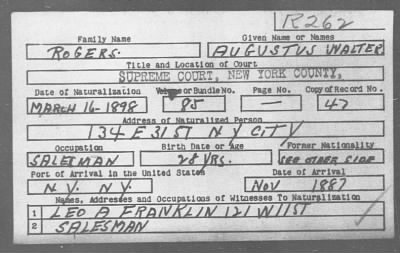 R262
Family Name Given Name or Names
ROGERS. AUGUSTUS WALTER
Title and Location of Court
SUPREME COURT, NEW YORK COUNTY,
Date of Naturalization Volume or Bundle No. Page No. Copy of Record No.
MARCH 16-1898 85 — 47
Address of Naturalized Person
134 E 31 ST N Y CITY
Occupation Birth Date or Age Former Nationality
SALESMAN 28 YRS. SEE OTHER SIDE
Port of Arrival in the United States Date of Arrival
N.Y. N.Y. NOV 1887
Names, Addresses and Occupations of Witnesses To Naturalization
1 LEO A FRANKLIN 121 W 11 ST
2 SALESMAN